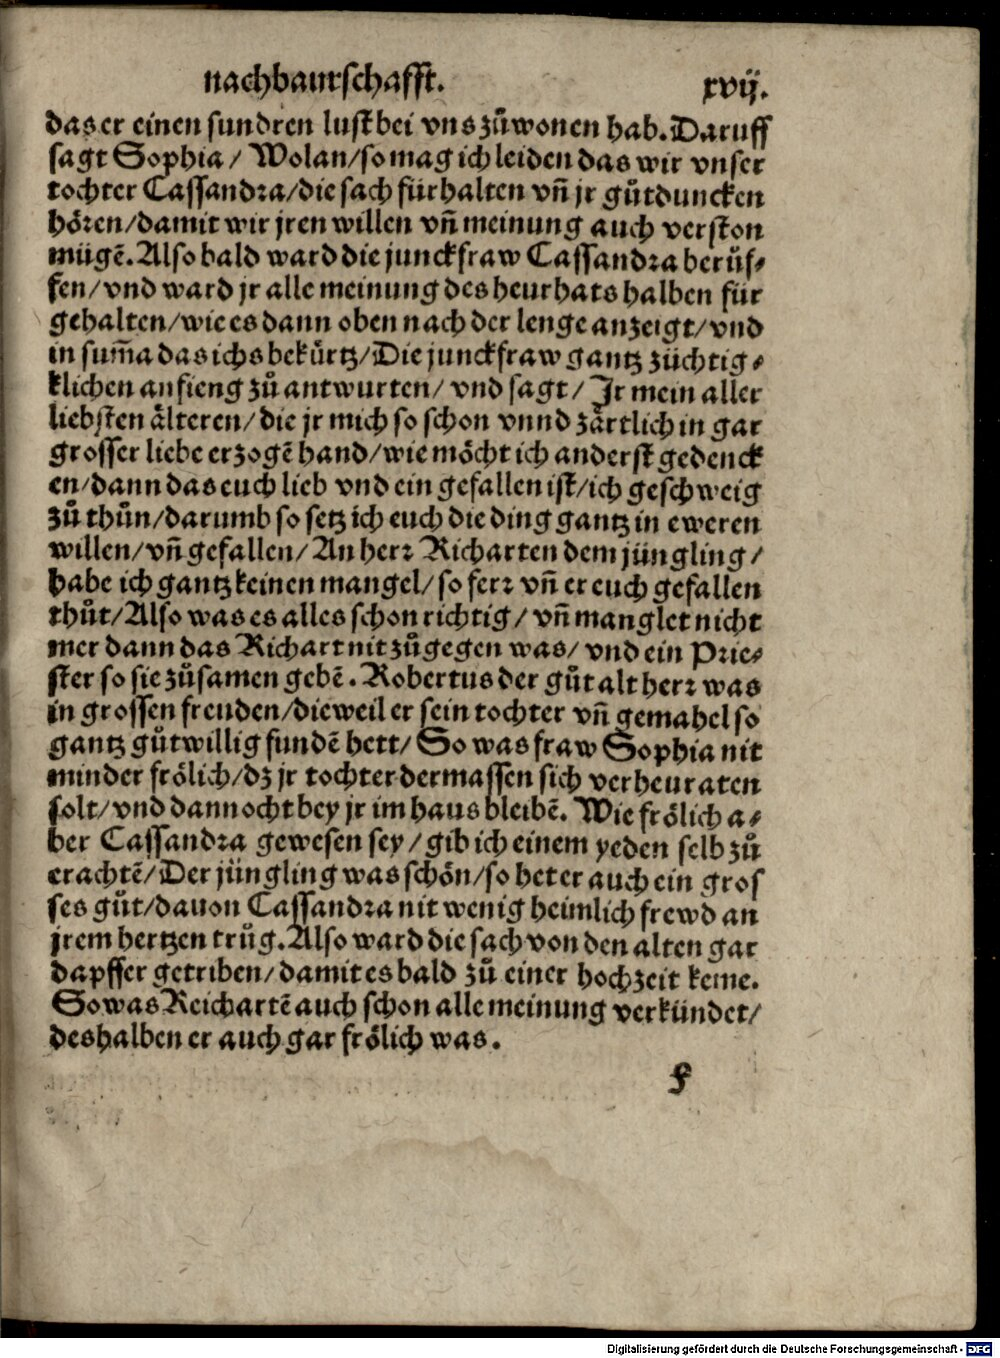 nachbaurschafft. xvij.
das er einen sundren lust bei vns zů wonen hab. Daruff
sagt Sophia / Wolan / so mag ich leiden das wir vnser
tochter Cassandra / die sach fürhalten vñ jr gůtduncken
hören / damit wir jren willen vñ meinung auch verston
mügẽ. Also bald ward die junckfraw Cassandra berůf⸗
fen / vnd ward jr alle meinung des heurhats halben für
gehalten / wie es dann oben nach der lenge anzeigt / vnd
in sum̃a das ichs bekürtz / Die junckfraw gantz züchtig⸗
klichen anfieng zů antwurten / vnd sagt / Jr mein aller
liebsten älteren / die jr mich so schon vnnd zärtlich in gar
grosser liebe erzogẽ hand / wie möcht ich anderst gedenck
en / dann das euch lieb vnd ein gefallen ist / ich geschweig
zů thůn / darumb so setz ich euch die ding gantz in eweren
willen / vñ gefallen / An herr Richarten dem jüngling /
habe ich gantz keinen mangel / so ferr vñ er euch gefallen
thůt / Also was es alles schon richtig / vñ manglet nicht
mer dann das Richart nit zůgegen was / vnd ein Prie⸗
ster so sie zůsamen gebẽ. Robertus der gůt alt herr was
in grossen freuden / dieweil er sein tochter vñ gemahel so
gantz gůtwillig fundẽ hett / So was fraw Sophia nit
minder frölich / dz jr tochter dermassen sich verheuraten
solt / vnd dannocht bey jr im haus bleibẽ. Wie frölich a⸗
ber Cassandra gewesen sey / gib ich einem yeden selb zů
erachtẽ / Der jüngling was schön / so het er auch ein gros
ses gůt / dauon Cassandra nit wenig heimlich frewd an
jrem hertzen trůg. Also ward die sach von den alten gar
dapffer getriben / damit es bald zů einer hochzeit keme.
So was Reichartẽ auch schon alle meinung verkündet /
deshalben er auch gar frölich was.
f
Digitalisierung gefördert durch die Deutsche Forschungsgemeinschaft - DFG